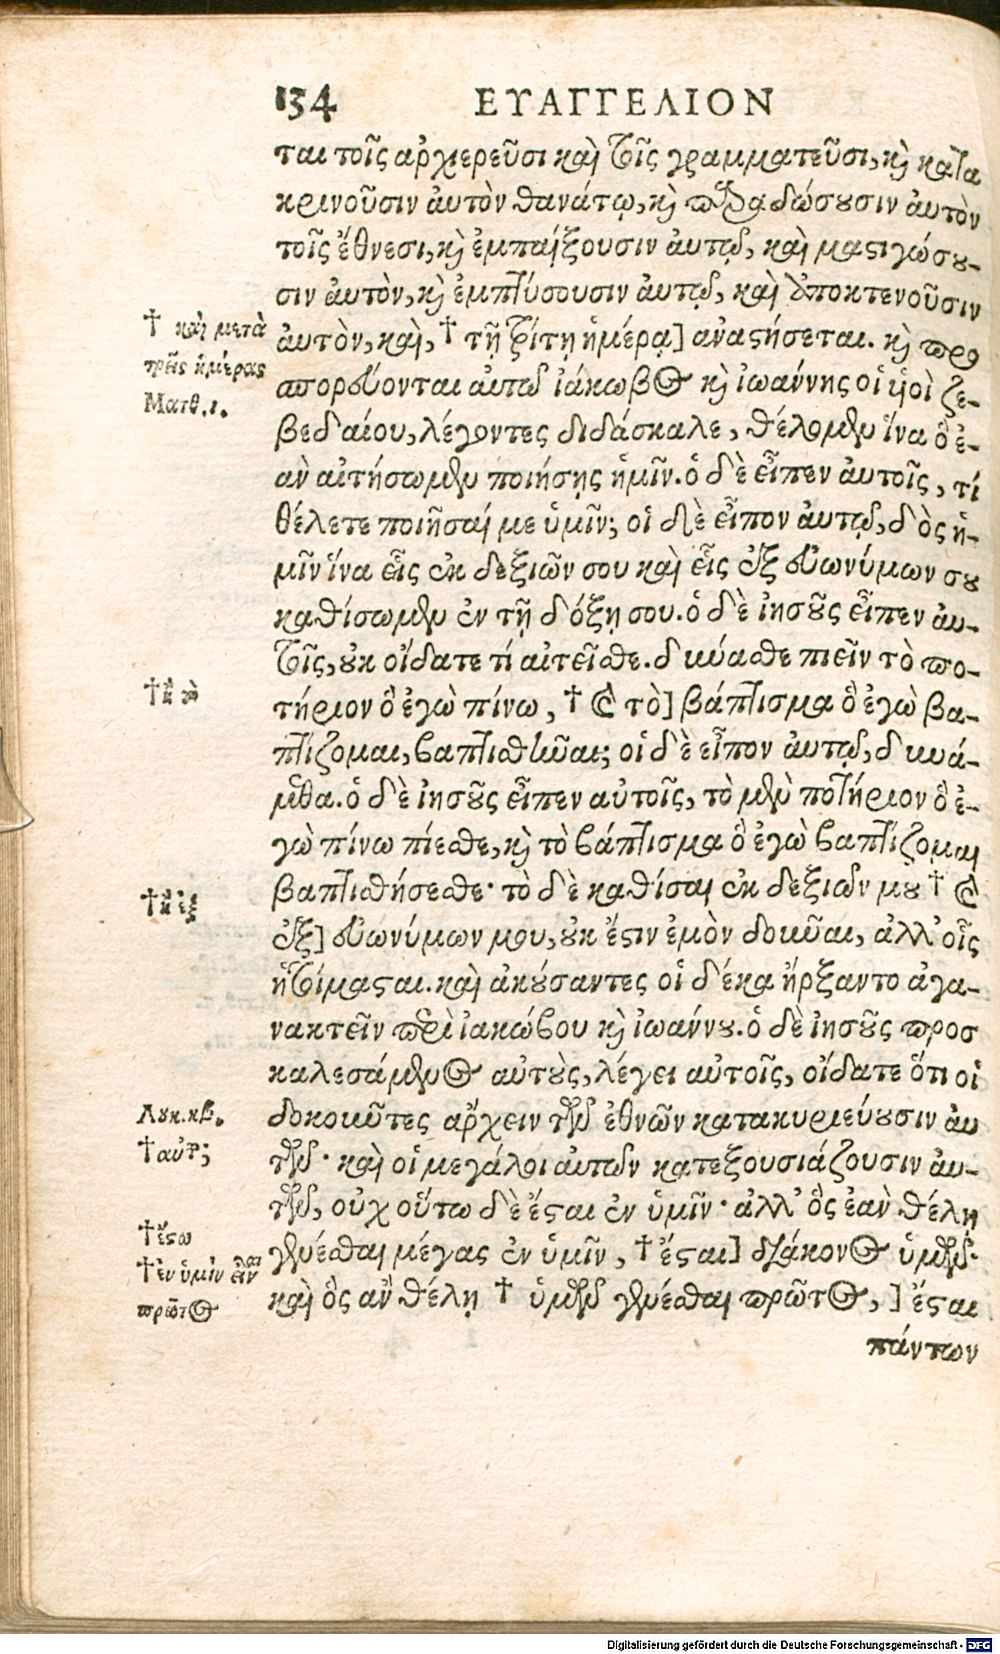 134 ΕΥΑΓΓΕΛΙΟΝ
ται τοῖς ἀρχιερεῦσι καὶ τοῖς γραμματεῦσι, κὶ κατα
κρινοῦσιν ἀυτὸν θανάτῳ, κὶ παραδώσουσιν ἀυτὸν
τοῖς ἔθνεσι, κὶ ἐμπαίξουσιν ἀυτῷ, καὶ μαστιγώσου-
σιν ἀυτὸν, κὶ ἐμπτύσουσιν ἀυτῷ, καὶ ἀποκτενοῦσιν
† καὶ μετὰ
τρεῖς ἡμέρας
Ματθ.ι.
ἀυτὸν, καὶ, † τῇ τρίτῃ ἡμέρᾳ] ἀναστήσεται. κὶ προ
σπορεύονται αὐτῷ ἰάκωβος κὶ ἰωάννης οἱ ὑοὶ ζε-
βεδαίου, λέγοντες διδάσκαλε, θέλομεν ἵνα ὃ ἐ-
ὰν αἰτήσωμεν ποιήσῃς ἡμῖν. ὁ δὲ εἶπεν ἀυτοῖς, τί
θέλετε ποιῆσαί με ὑμῖν; οἱ δὲ εἶπον ἀυτῷ, δὸς ἡ-
μῖν ἵνα εἷς ἐκ δεξιῶν σου καὶ εἷς ἐξ εὐωνύμων σου
καθίσωμεν ἐν τῇ δόξῃ σου. ὁ δὲ ἰησοῦς εἶπεν ἀυ-
τοῖς, οὐκ οἴδατε τί αἰτεῖσθε. δύνασθε πιεῖν τὸ πο-
τήριον ὃ ἐγὼ πίνω, † καὶ τὸ] βάπτισμα ὃ ἐγὼ βα-
πτίζομαι, βαπτισθῆναι; οἱ δὲ εἶπον ἀυτῷ, δυνά-
μεθα. ὁ δὲ ἰησοῦς εἶπεν αὐτοῖς, τὸ μὲν ποτήριον ὃ ἐ-
γὼ πίνω πίεσθε, κὶ τὸ βάπτισμα ὃ ἐγὼ βαπτίζομαι
† ἢ ἐξ
βαπτισθήσεσθε· τὸ δὲ καθίσαι ἐκ δεξιῶν μου † καὶ
ἐξ] εὐωνύμων μου, οὐκ ἔστιν ἐμὸν δοῦναι, ἀλλ' οἷς
ἡτοίμασται. καὶ ἀκούσαντες οἱ δέκα ἤρξαντο ἀγα-
νακτεῖν περὶ ἰακώβου κὶ ἰωάννου. ὁ δὲ ἰησοῦς προσ
καλεσάμενος αὐτοὺς, λέγει αὐτοῖς, οἴδατε ὅτι οἱ
Λουκ.κβ.
δοκοῦντες ἄρχειν τῶν ἐθνῶν κατακυριεύουσιν ἀυ
τῶν· καὶ οἱ μεγάλοι ἀυτῶν κατεξουσιάζουσιν ἀυ-
τῶν, οὐχ οὕτω δὲ ἔσται ἐν ὑμῖν· ἀλλ' ὃς ἐὰν θέλῃ
† ἔστω
γενέσθαι μέγας ἐν ὑμῖν, † ἔσται] διάκονος ὑμῶν·
† ἐν ὑμῖν εἶναι
πρῶτος
καὶ ὃς ἂν θέλῃ † ὑμῶν γενέσθαι πρῶτος, ] ἔσται
πάντων
Digitalisierung gefördert durch die Deutsche Forschungsgemeinschaft - DFG